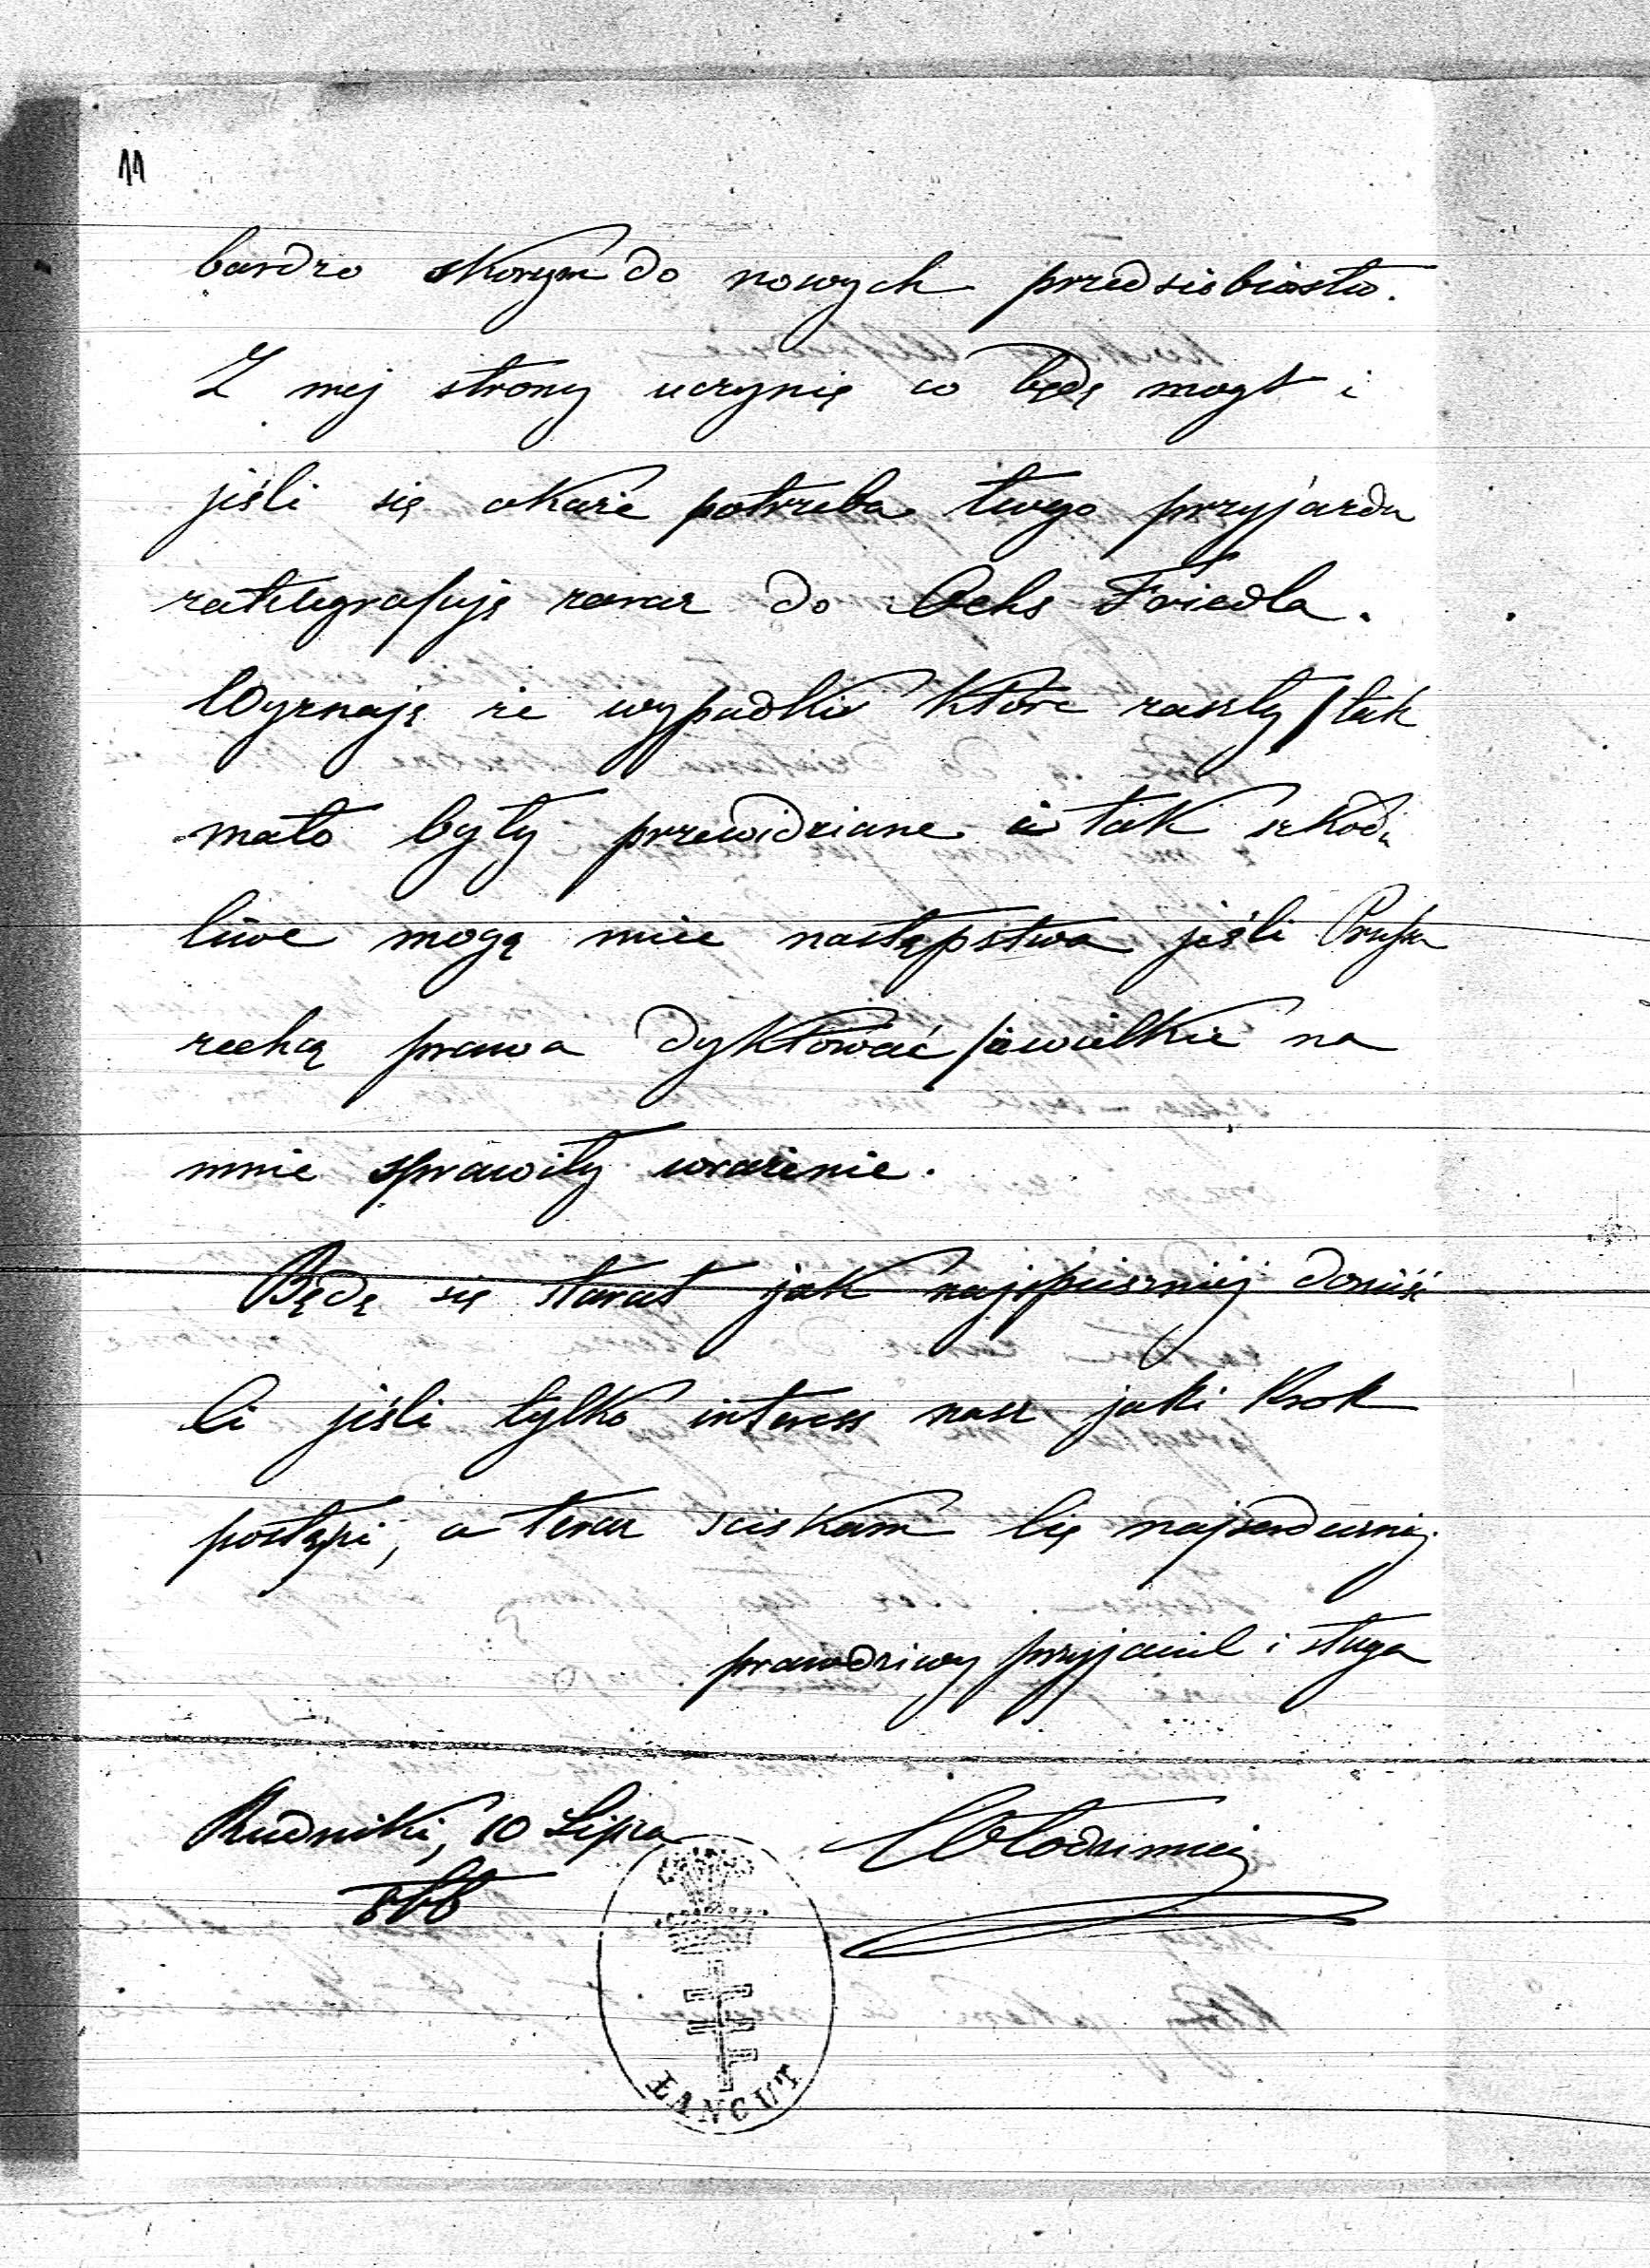 11
bardzo skorym do nowych przedsiobiostw.
Z mej strony uczynię co będę mogł i
jeśli się okaże potrzeba twego przyjazdu
zatelegrafuję zaraz do Ochs Friedla.
Wyznaję że wypadki które zaszły / tak
mało były przewidziane i tak szkodli
liwe mogą mieć następstwa jeśli Prusy
zechcą prawa dyktować / wielkie na
mnie sprawiły wrażenie.
Będę się starał jak najspieszniej donieść
Ci jeśli tylko interess nasz jaki krok
postąpi, a teraz sciskam Cię najserdeczniej.
prawdziwy przyjaciel i sługa
Rudniki, 10 Lipca
Włodzimierz
866
ŁANCUT